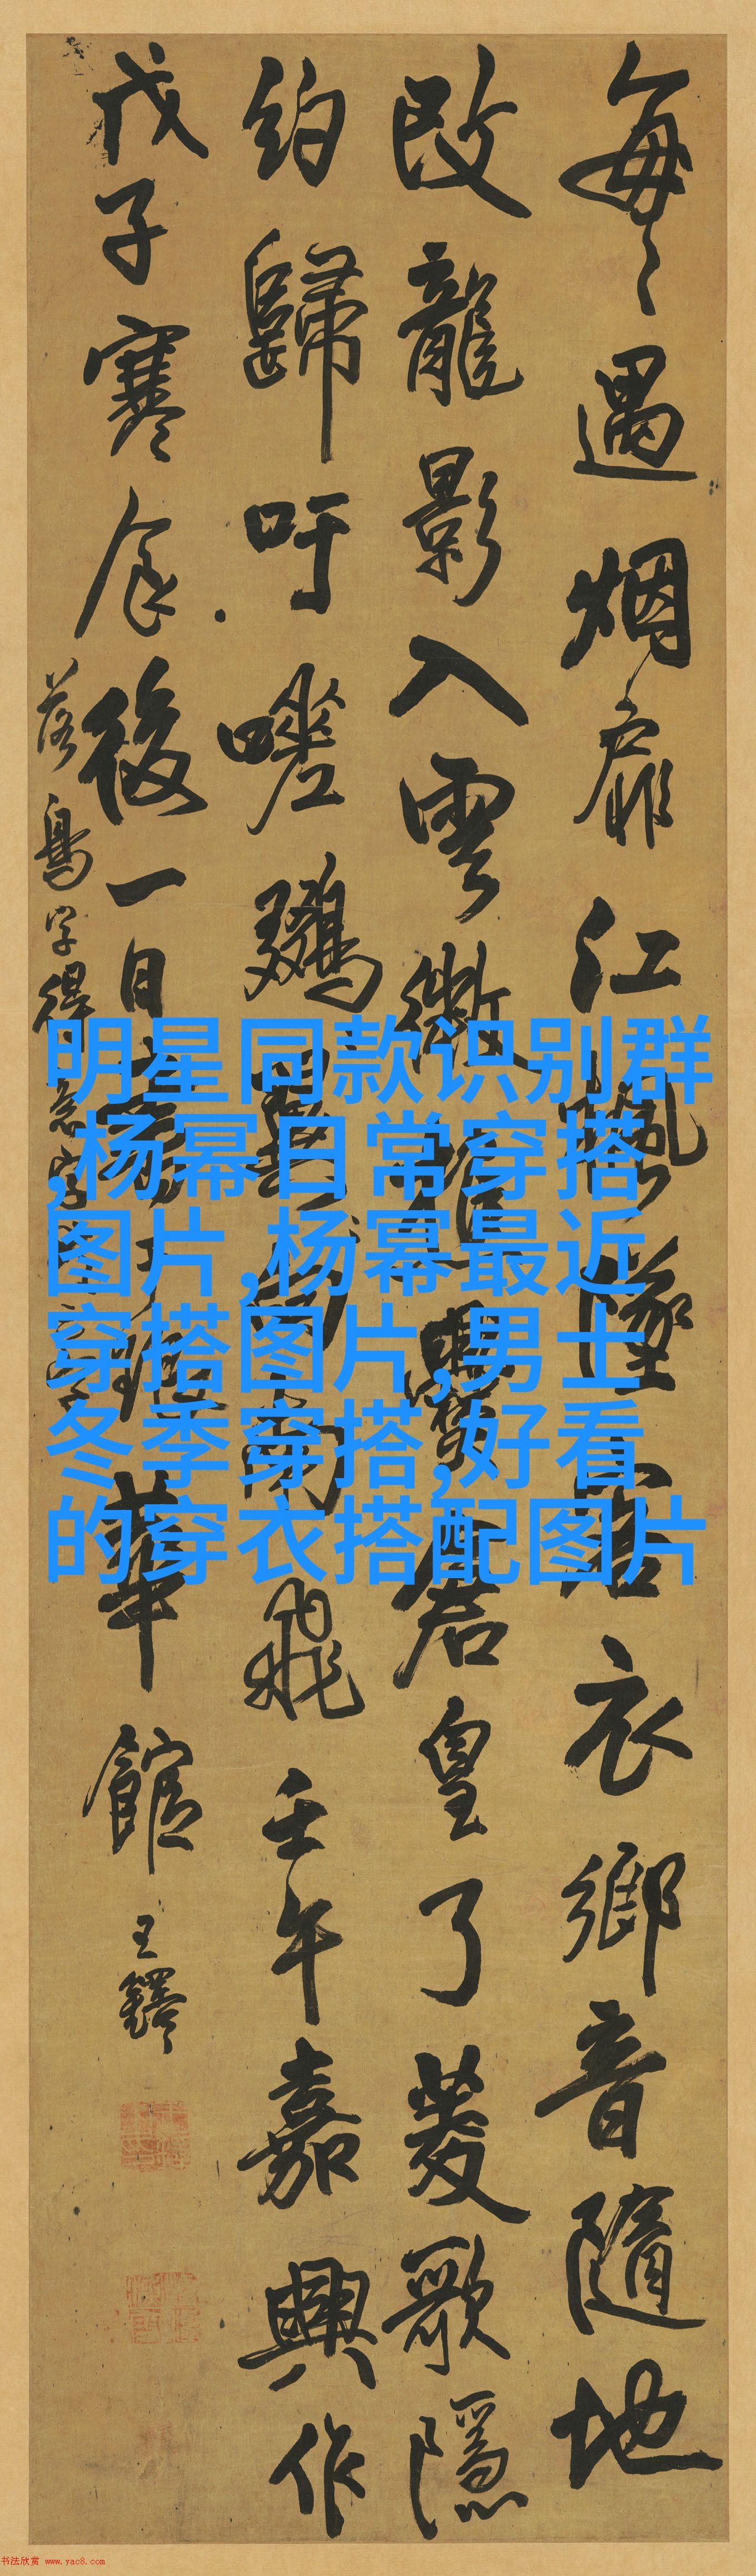 每〻遇烟扉江楓墜衣鄉音隨地
改龍影入雲微倉皇了菱歌隱
約歸吁嗟南飛壬午嘉興作
戊子寒食後一日華館王鐸
落字得意字
明星同款识别群
,杨幂日常穿搭
图片,杨幂最近
穿搭图片,男士
冬季穿搭,好看
的穿衣搭配图片
书法欣赏 www.yac8.com